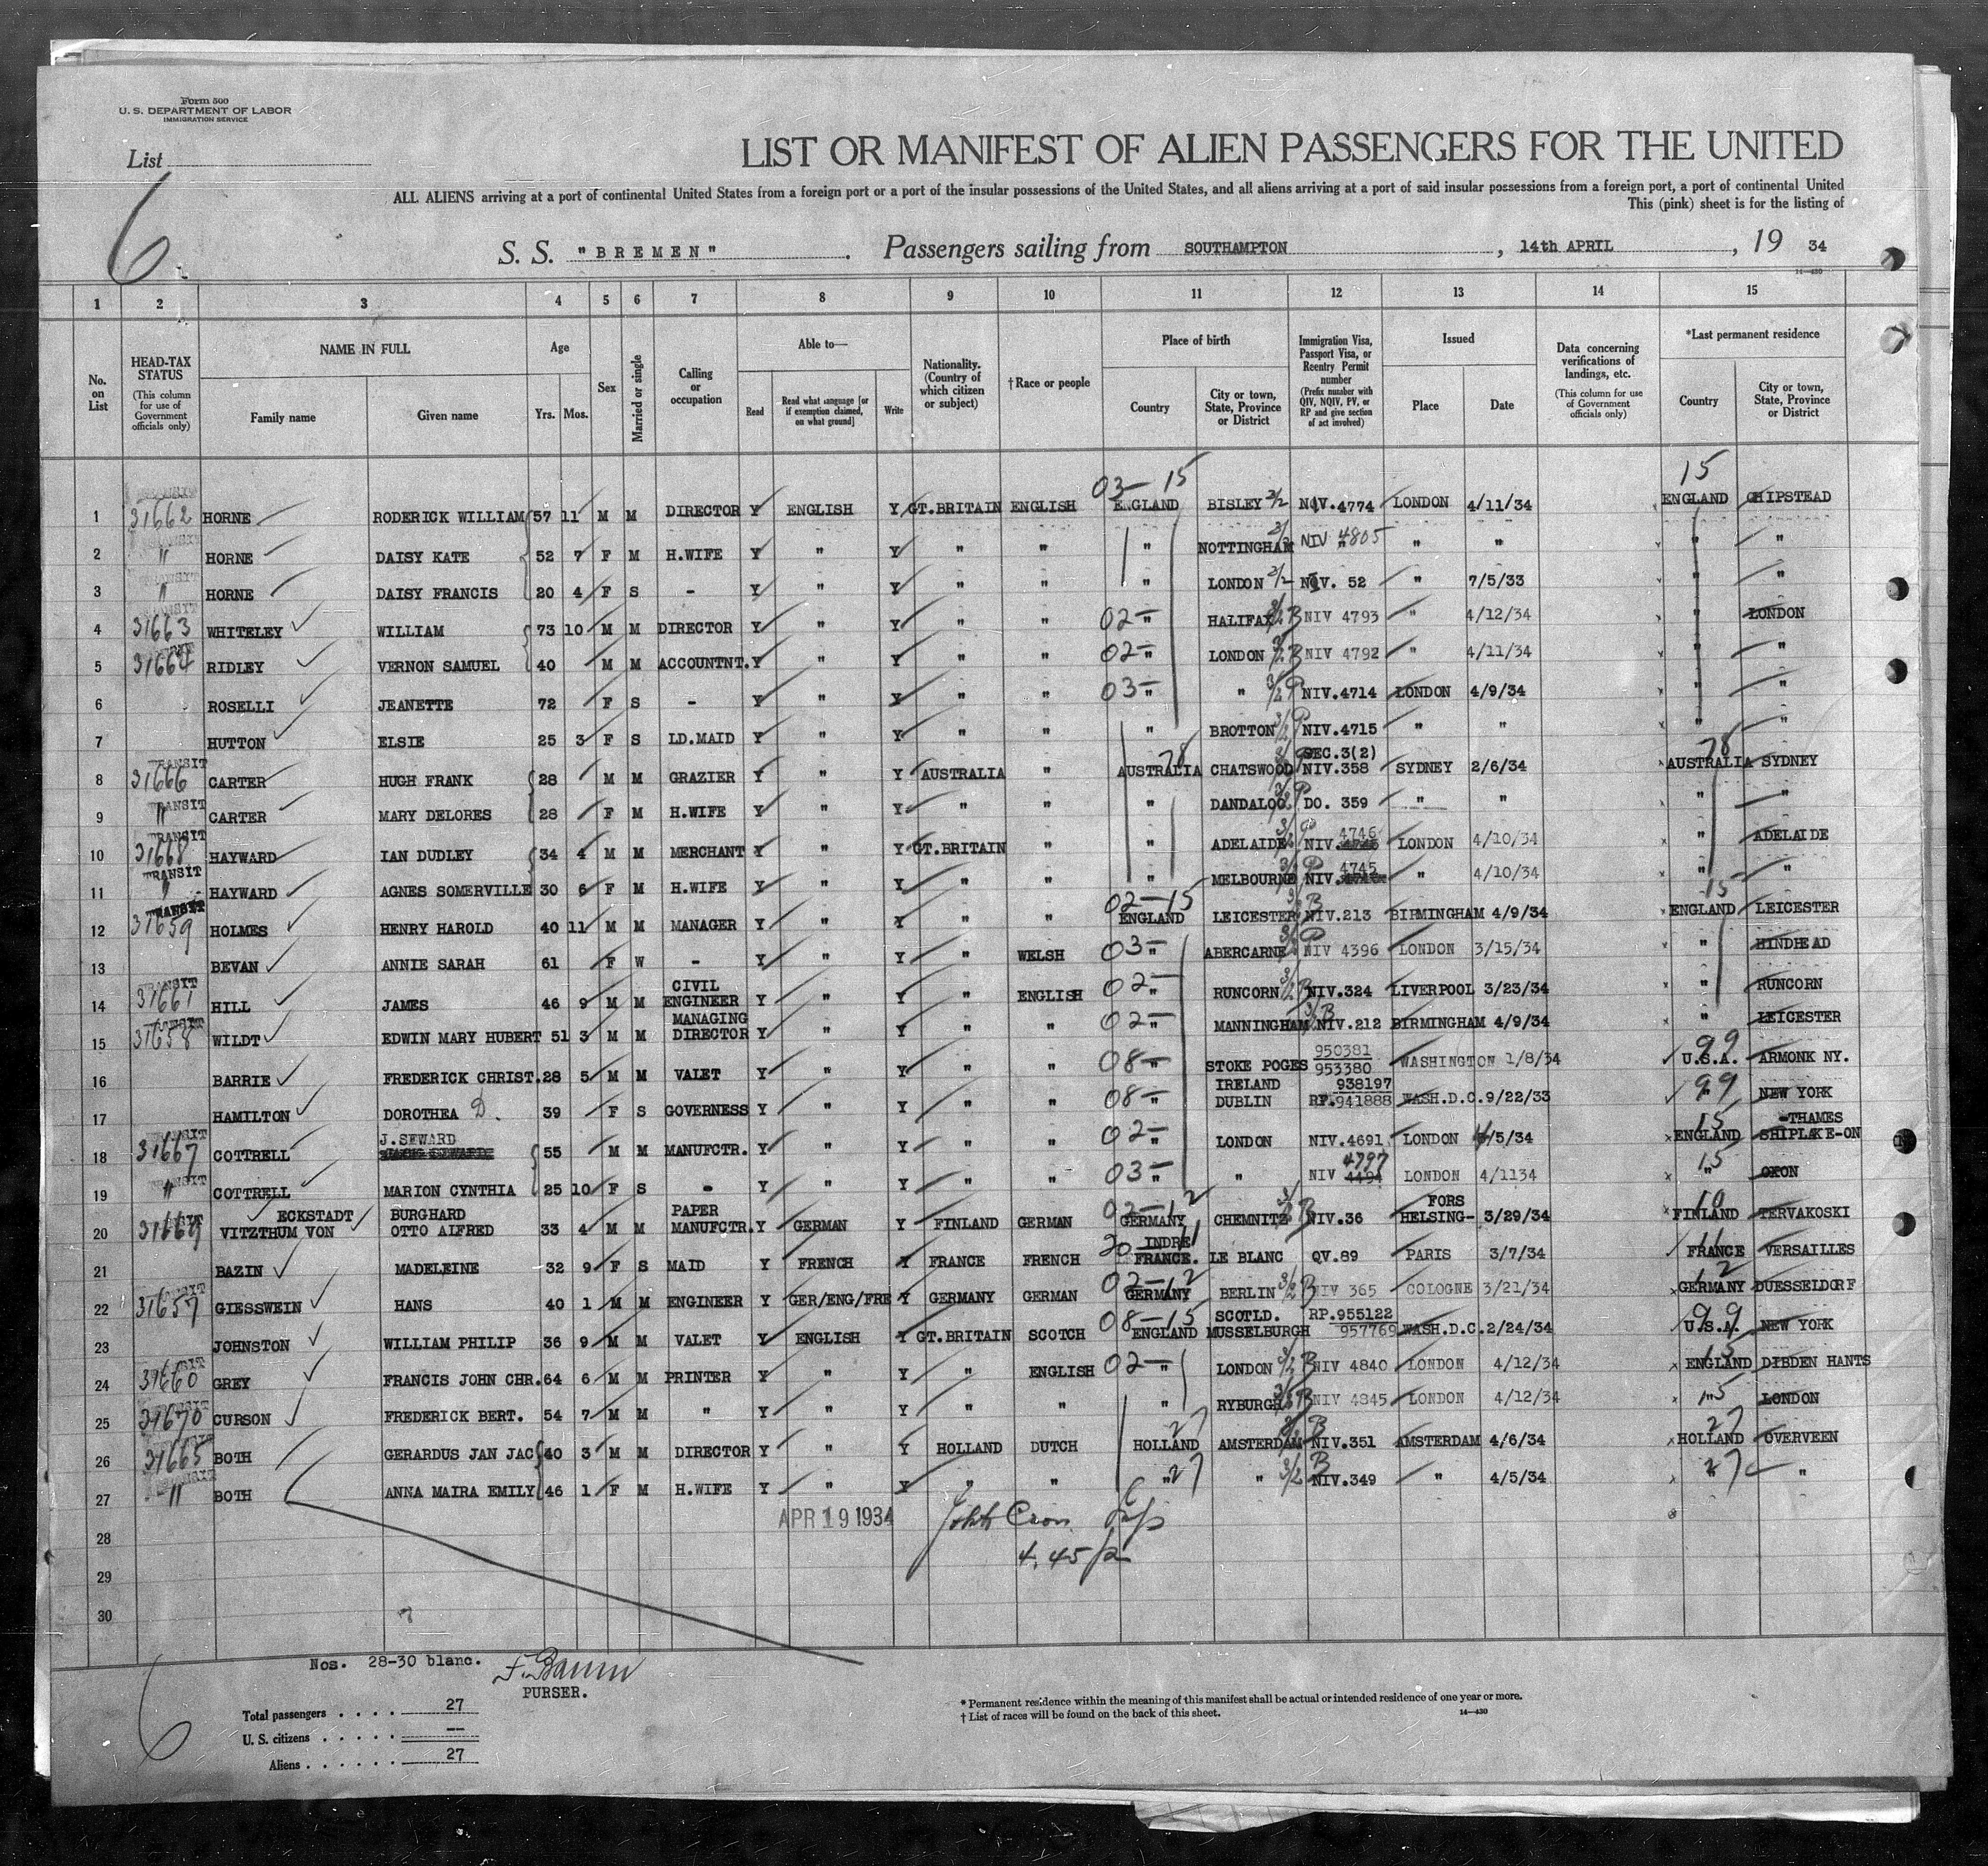 Form 500
U. S. DEPARTMENT OF LABOR
IMMIGRATION SERVICE
List
6
LIST OR MANIFEST OF ALIEN PASSENGERS FOR THE UNITED
ALL ALIENS arriving at a port of continental United States from a foreign port or a port of the insular possessions of the United States, and all aliens arriving at a port of said insular possessions from a foreign port, a port of continental United
This (pink) sheet is for the listing of
S. S. "BREMEN". Passengers sailing from SOUTHAMPTON, 14th APRIL, 19 34
14—430
1 2 3 4 5 6 7 8 9 10 11 12 13 14 15
No. on List
HEAD-TAX STATUS (This column for use of Government officials only)
NAME IN FULL Family name Given name
Age Yrs. Mos.
Sex
Married or single
Calling or occupation
Able to— Read Read what language [or if exemption claimed, on what ground] Write
Nationality. (Country of which citizen or subject)
†Race or people
Place of birth Country City or town, State, Province or District
Immigration Visa, Passport Visa, or Reentry Permit number (Prefix number with QIV, NQIV, PV, or RP and give section of act involved)
Issued Place Date
Data concerning verifications of landings, etc. (This column for use of Government officials only)
*Last permanent residence Country City or town, State, Province or District
03— 15 15
1 31662 HORNE RODERICK WILLIAM 57 11 M M DIRECTOR Y ENGLISH Y GT.BRITAIN ENGLISH ENGLAND BISLEY NIV.4774 LONDON 4/11/34 ENGLAND CHIPSTEAD
2 " HORNE DAISY KATE 52 7 F M H.WIFE Y " Y " " " NOTTINGHAM NIV 4805 " " " "
3 " HORNE DAISY FRANCIS 20 4 F S - Y " Y " " " LONDON NIV. 52 " 7/5/33 " "
4 31663 WHITELEY WILLIAM 73 10 M M DIRECTOR Y " Y " " 02— " HALIFAX NIV 4793 " 4/12/34 " LONDON
5 31664 RIDLEY VERNON SAMUEL 40 M M ACCOUNTNT. Y " Y " " 02— " LONDON NIV 4792 " 4/11/34 " "
6 ROSELLI JEANETTE 72 F S - Y " Y " " 03— " " NIV.4714 LONDON 4/9/34 " "
7 HUTTON ELSIE 25 3 F S LD.MAID Y " Y " " " BROTTON NIV.4715 " " " "
SEC.3(2)
8 TRANSIT 31666 CARTER HUGH FRANK 28 M M GRAZIER Y " Y AUSTRALIA " AUSTRALIA 78 CHATSWOOD NIV.358 SYDNEY 2/6/34 AUSTRALIA 78 SYDNEY
9 TRANSIT " CARTER MARY DELORES 28 F M H.WIFE Y " Y " " " DANDALOO DO. 359 " " " "
10 TRANSIT 31668 HAYWARD IAN DUDLEY 34 4 M M MERCHANT Y " Y GT.BRITAIN " " ADELAIDE NIV. 4746 LONDON 4/10/34 " ADELAIDE
11 TRANSIT " HAYWARD AGNES SOMERVILLE 30 6 F M H.WIFE Y " Y " " " MELBOURNE NIV. 4745 " 4/10/34 " "
02—15 15
12 TRANSIT 31659 HOLMES HENRY HAROLD 40 11 M M MANAGER Y " Y " " ENGLAND LEICESTER NIV.213 BIRMINGHAM 4/9/34 ENGLAND LEICESTER
13 BEVAN ANNIE SARAH 61 F W - Y " Y " WELSH 03— " ABERCARNE NIV 4396 LONDON 3/15/34 " HINDHEAD
14 TRANSIT 31661 HILL JAMES 46 9 M M CIVIL ENGINEER Y " Y " ENGLISH 02— " RUNCORN NIV.324 LIVERPOOL 3/23/34 " RUNCORN
15 31658 WILDT EDWIN MARY HUBERT 51 3 M M MANAGING DIRECTOR Y " Y " " 02— " MANNINGHAM NIV.212 BIRMINGHAM 4/9/34 " LEICESTER
16 BARRIE FREDERICK CHRIST. 28 5 M M VALET Y " Y " " 08— STOKE POGES 950381 953380 WASHINGTON 1/8/34 99 U.S.A. ARMONK NY.
17 HAMILTON DOROTHEA D. 39 F S GOVERNESS Y " Y " " 08— " IRELAND DUBLIN 938197 RP.941888 WASH.D.C. 9/22/33 99 " NEW YORK
18 31667 COTTRELL J.SEWARD 55 M M MANUFCTR. Y " Y " " 02— " LONDON NIV.4691 LONDON 4/5/34 15 ENGLAND -THAMES SHIPLAKE-ON
19 " COTTRELL MARION CYNTHIA 25 10 F S - Y " Y " " 03— " " NIV 4797 4494 LONDON 4/1134 15 " OXON
20 31669 ECKSTADT VITZTHUM VON BURGHARD OTTO ALFRED 33 4 M M PAPER MANUFCTR. Y GERMAN Y FINLAND GERMAN 02—12 GERMANY CHEMNITZ NIV.36 FORS HELSING- 3/29/34 10 FINLAND TERVAKOSKI
21 BAZIN MADELEINE 32 9 F S MAID Y FRENCH Y FRANCE FRENCH 20 11 INDRE FRANCE. LE BLANC QV.89 PARIS 3/7/34 11 FRANCE VERSAILLES
22 31657 GIESSWEIN HANS 40 1 M M ENGINEER Y GER/ENG/FRE Y GERMANY GERMAN 02—12 GERMANY BERLIN NIV 365 COLOGNE 3/21/34 12 GERMANY DUESSELDORF
23 JOHNSTON WILLIAM PHILIP 36 9 M M VALET Y ENGLISH Y GT.BRITAIN SCOTCH 08—15 ENGLAND SCOTLD. MUSSELBURGH RP.955122 957769 WASH.D.C. 2/24/34 99 U.S.A. NEW YORK
24 31660 GREY FRANCIS JOHN CHR. 64 6 M M PRINTER Y " Y " ENGLISH 02— " LONDON NIV 4840 LONDON 4/12/34 15 ENGLAND DIBDEN HANTS
25 31670 CURSON FREDERICK BERT. 54 7 M M " Y " Y " " " RYBURGH NIV 4845 LONDON 4/12/34 15 " LONDON
26 31665 BOTH GERARDUS JAN JAC 40 3 M M DIRECTOR Y " Y HOLLAND DUTCH HOLLAND 27 AMSTERDAM NIV.351 AMSTERDAM 4/6/34 27 HOLLAND OVERVEEN
27 " BOTH ANNA MAIRA EMILY 46 1 F M H.WIFE Y " Y " " " 27 " NIV.349 " 4/5/34 " 27 "
28 APR 19 1934
29 4.45 p
30
Nos. 28-30 blanc.
PURSER.
6
Total passengers . . . . 27
U. S. citizens . . . . . --
Aliens . . . . . . 27
* Permanent residence within the meaning of this manifest shall be actual or intended residence of one year or more.
† List of races will be found on the back of this sheet.
14—430